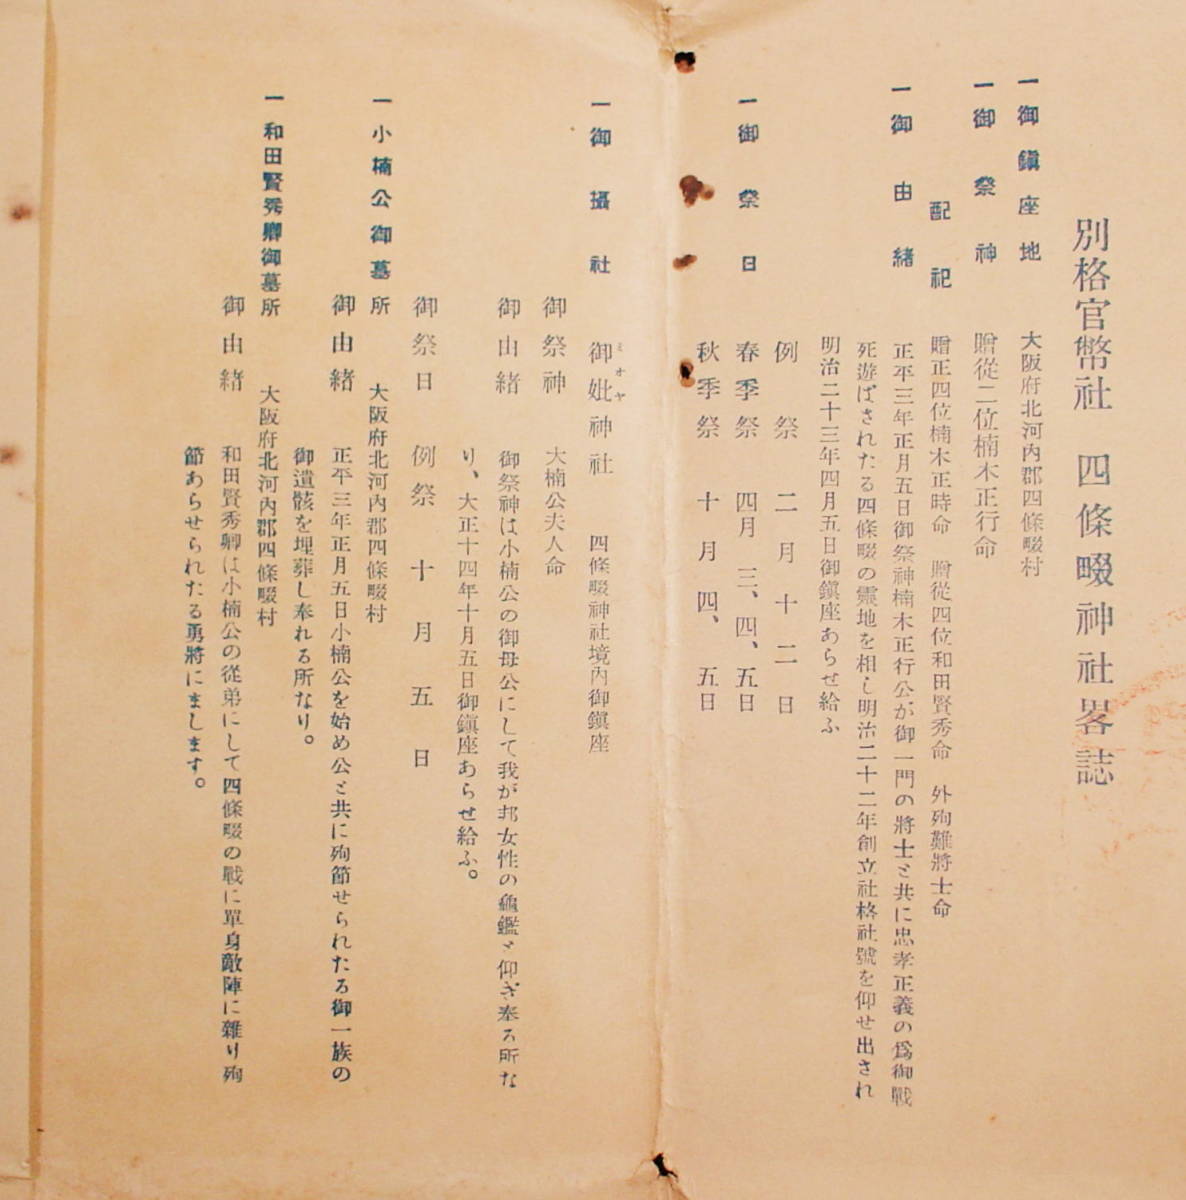 別格官幣社 四條畷神社畧誌
一御鎭座地 大阪府北河內郡四條畷村
一御祭神 贈從二位楠木正行命
配祀 贈正四位楠木正時命 贈從四位和田賢秀命 外殉難將士命
一御由緖 正平三年正月五日御祭神楠木正行公が御一門の將士と共に忠孝正義の爲御戰
死遊ばされたる四條畷の靈地を相し明治二十二年創立社格社號を仰せ出され
明治二十三年四月五日御鎭座あらせ給ふ
一御祭日 例祭 二月十二日
春季祭 四月三、四、五日
秋季祭 十月四、五日
一御攝社 御妣神社 四條畷神社境內御鎭座
ミオヤ
御祭神 大楠公夫人命
御由緖 御祭神は小楠公の御母公にして我が邦女性の龜鑑と仰ぎ奉る所な
り、大正十四年十月五日御鎭座あらせ給ふ。
御祭日 例祭 十月五日
一小楠公御墓所 大阪府北河內郡四條畷村
御由緖 正平三年正月五日小楠公を始め公と共に殉節せられたる御一族の
御遺骸を埋葬し奉れる所なり。
一和田賢秀卿御墓所 大阪府北河內郡四條畷村
御由緖 和田賢秀卿は小楠公の從弟にして四條畷の戰に單身敵陣に雜り殉
節あらせられたる勇將にまします。